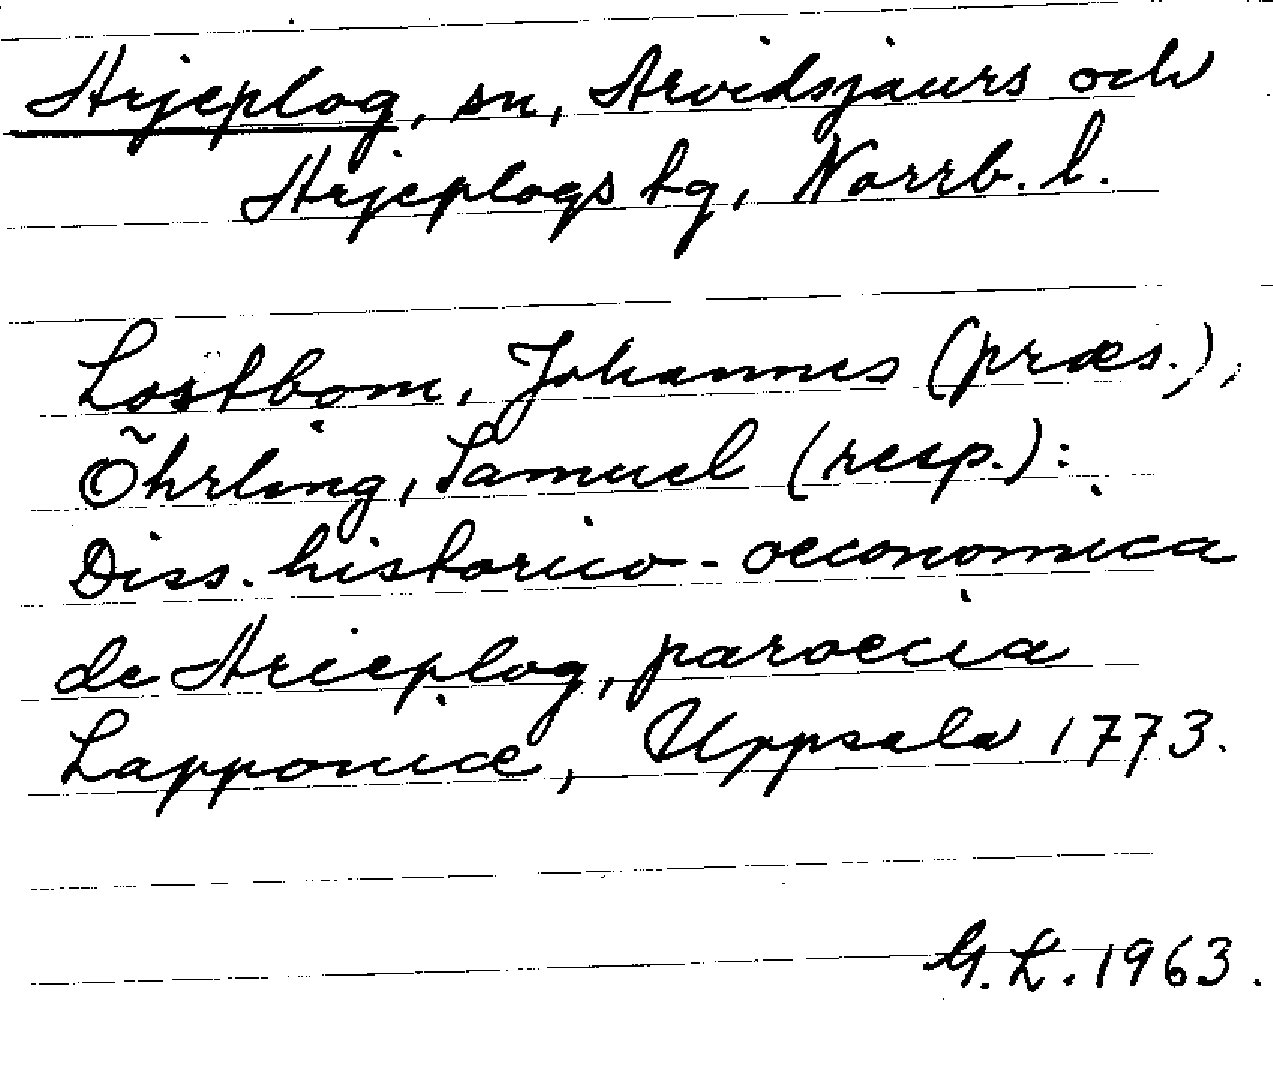 Arjeplog, sn, Arvidsjaurs och
Arjeplogs tg, Norrb. l.
Lostbom, Johannes (præs.),
Öhrling, Samuel (resp.):
Diss. historico-oeconomica
de Arieplog, paroecia
Lapponiæ, Uppsala 1773.
G.L. 1963.